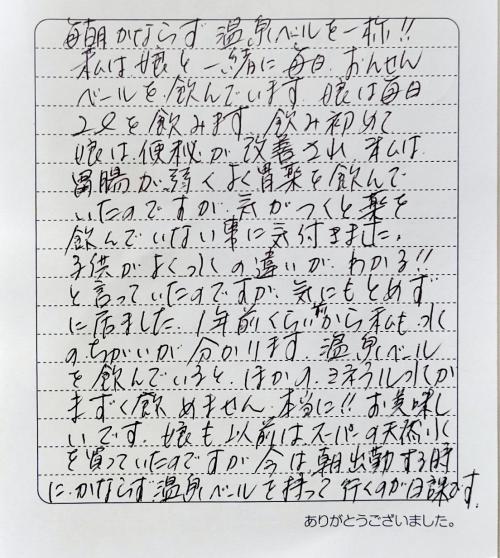 毎朝かならず 温泉ベールを一杯!!
私は娘と一緒に毎日 おんせん
ベールを 飲んでいます 娘は毎日
2ℓを飲みます 飲み初めて
娘は 便秘が 改善され 私は
胃腸が弱くよく胃薬を飲んで
いたのですが 気がつくと薬を
飲んでいない事に気付きました。
子供がよく水の違いが わかる!!
と言っていたのですが 気にもとめず
に居ました 1年前くらい前から私も水
のちがいが 分かります 温泉ベール
を 飲んでいると ほかのミネラル水が
まずく飲めません 本当に!! お美味し
いです。娘も以前はスーパーの天然水
を買っていたのですが 今は 朝出勤する時
に かならず 温泉ベールを持って行くのが日課です。
ありがとうございました。